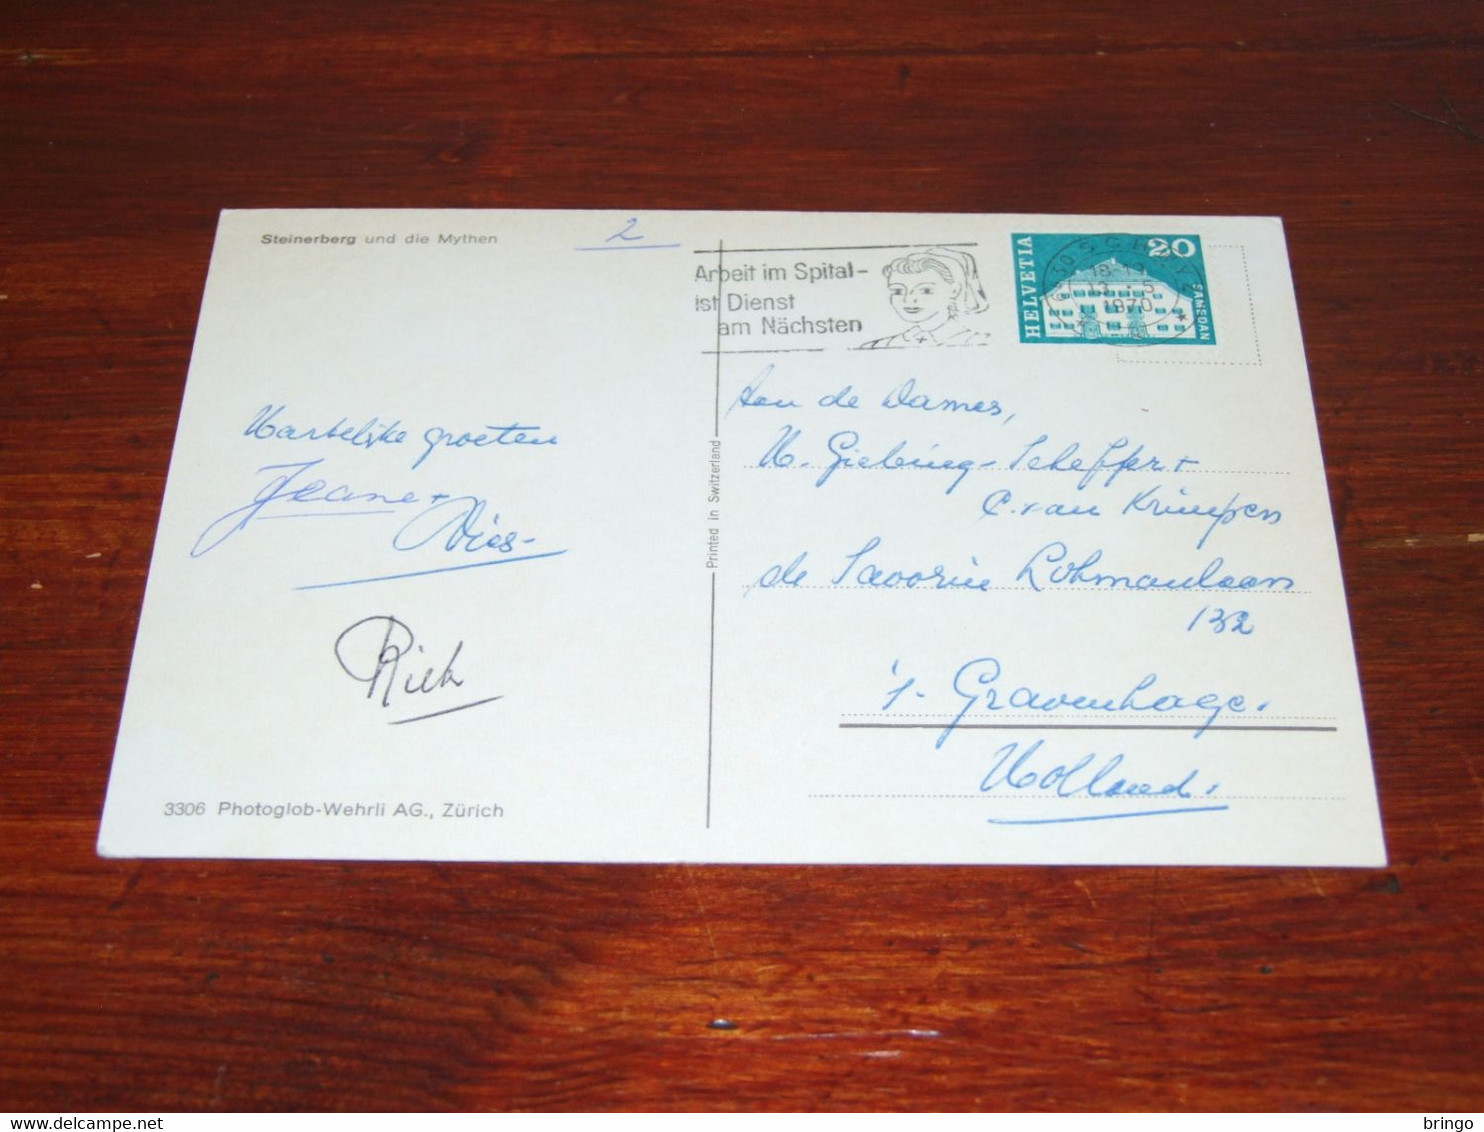 Steinerberg und die Mythen
2
Arbeit im Spital-
ist Dienst
am Nächsten
HELVETIA
20
SAMEDAN
SCHWYZ
18-19
1970
Hartelijke groeten
Jeane +
Dies-
Riek
3306 Photoglob-Wehrli AG., Zürich
Printed in Switzerland
Aan de Dames,
Scheffer +
C. van Krimpen
de Savornin Lohmanlaan
132
's-Gravenhage.
Holland.
delcampe.net
bringo